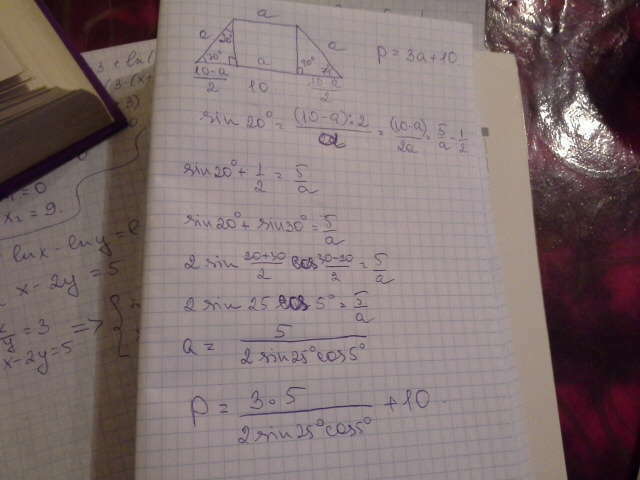 a
a 20° a
70° a 70°
(10-a)/2 10 (10-a)/2
P = 3a+10
sin 20° = ((10-a):2)/a = (10-a)/2a = 5/a - 1/2
sin20° + 1/2 = 5/a
sin20° + sin30° = 5/a
2 sin (20+30)/2 cos (30-20)/2 = 5/a
2 sin 25 cos 5° = 5/a
a = 5/(2 sin25°cos5°)
P = 3·5/(2 sin25°cos5°) + 10
x₂ = 9.
lnx - lny =
x - 2y = 5
= 3 =>
x - 2y = 5